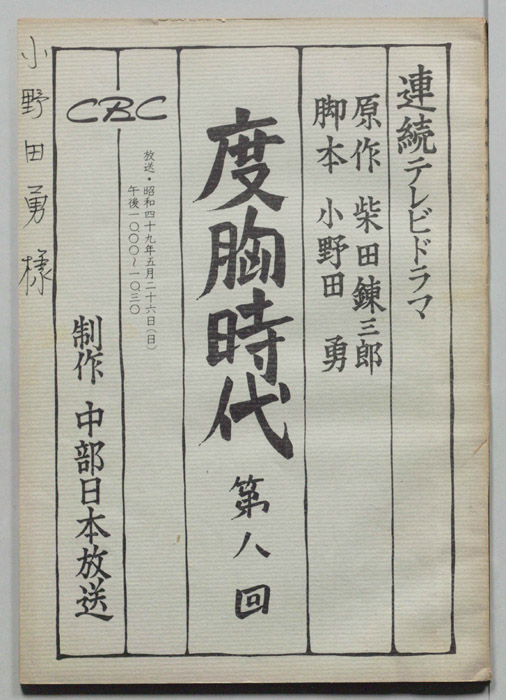 連続テレビドラマ
原作 柴田錬三郎
脚本 小野田 勇
度胸時代 第八回
放送・昭和四十九年五月二十六日(日)
午後一〇〇〇〜一〇三〇
CBC
制作 中部日本放送
小野田勇様